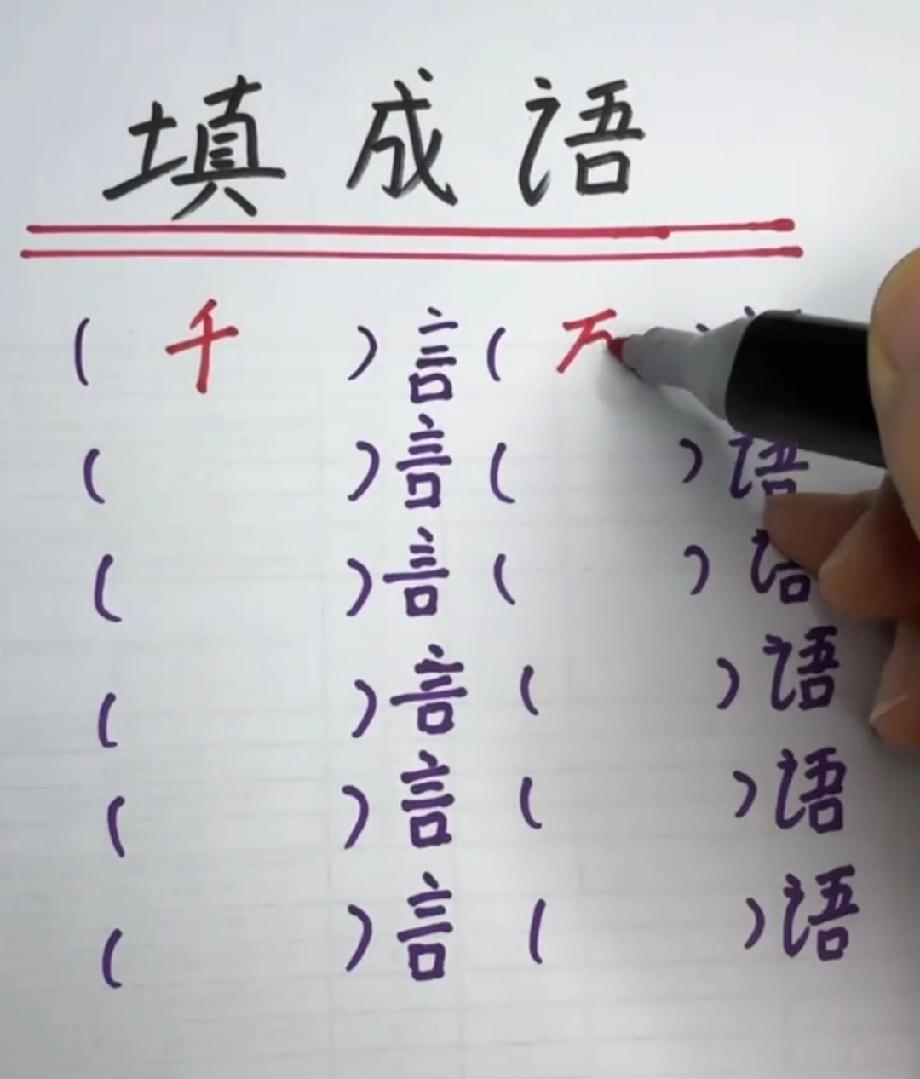 填成语
( 千 ) 言 ( 万
( ) 言 ( ) 语
( ) 言 ( ) 语
( ) 言 ( ) 语
( ) 言 ( ) 语
( ) 言 ( ) 语